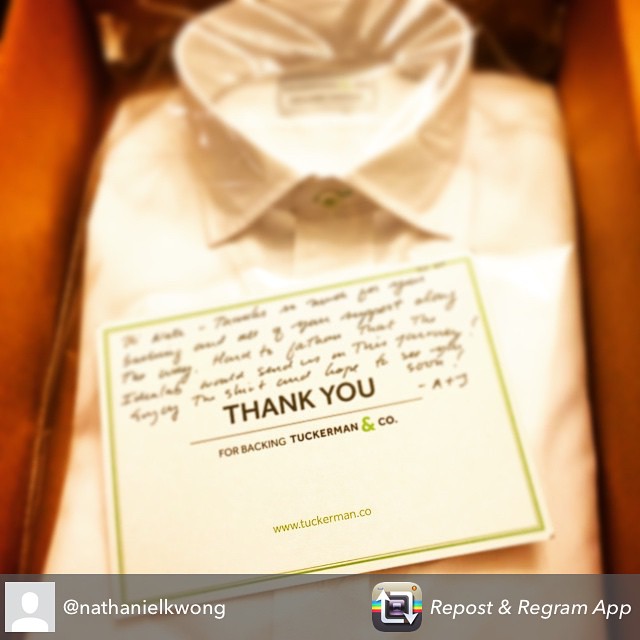 Hi Nate - Thanks so much for your
backing and all of your support along
the way. Hard to fathom that the
Idealab would send us on this journey!
Enjoy the shirt and hope to see you
soon!
- A+J
THANK YOU
FOR BACKING TUCKERMAN & CO.
www.tuckerman.co
@nathanielkwong
Repost & Regram App